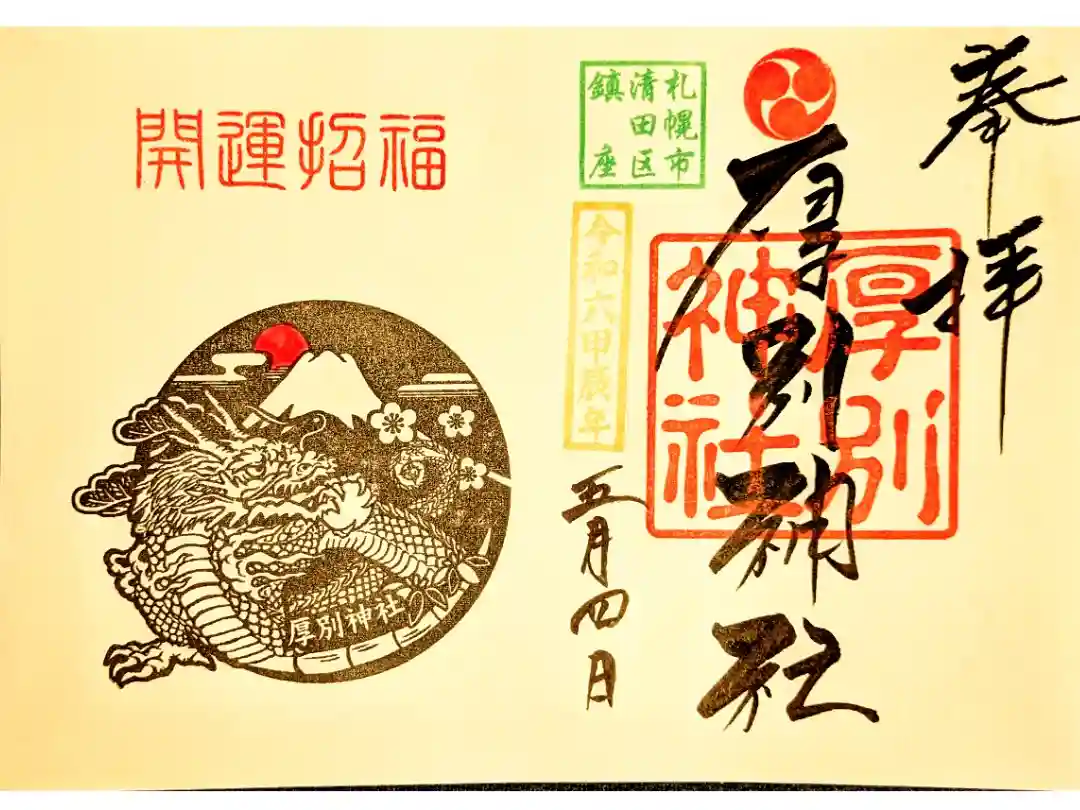 奉拝
厚別神社
厚別
神社
札幌市
清田区
鎮座
令和六甲辰年
五月四日
開運招福
厚別神社